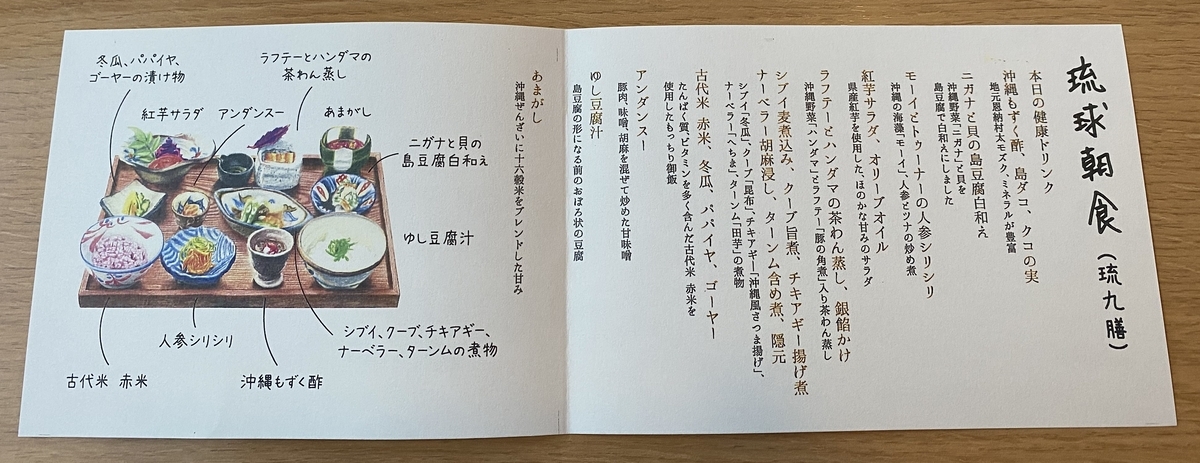 琉球朝食（琉九膳）
本日の健康ドリンク
沖縄もずく酢、島ダコ、クコの実
地元恩納村太モズク、ミネラルが豊富
ニガナと貝の島豆腐白和え
沖縄野菜「ニガナ」と貝を
島豆腐で白和えにしました
モーイとトゥーナーの人参シリシリ
沖縄の海藻「モーイ」、人参とツナの炒め煮
紅芋サラダ、オリーブオイル
県産紅芋を使用した、ほのかな甘みのサラダ
ラフテーとハンダマの茶わん蒸し、銀餡かけ
沖縄野菜「ハンダマ」とラフテー「豚の角煮」入り茶わん蒸し
シブイ麦煮込み、クーブ旨煮、チキアギー揚げ煮
ナーベラー胡麻浸し、ターンム含め煮、隠元
シブイ「冬瓜」、クーブ「昆布」、チキアギー「沖縄風さつま揚げ」、
ナーベラー「へちま」、ターンム「田芋」の煮物
古代米 赤米、冬瓜、パパイヤ、ゴーヤー
たんぱく質、ビタミンを多く含んだ古代米 赤米を
使用したもっちり御飯
アンダンスー
豚肉、味噌、胡麻を混ぜて炒めた甘味噌
ゆし豆腐汁
島豆腐の形になる前のおぼろ状の豆腐
あまがし
沖縄ぜんざいに十六穀米をブレンドした甘み
冬瓜、パパイヤ、
ゴーヤーの漬け物
ラフテーとハンダマの
茶わん蒸し
紅芋サラダ
アンダンスー
あまがし
ニガナと貝の
島豆腐白和え
ゆし豆腐汁
シブイ、クーブ、チキアギー、
ナーベラー、ターンムの煮物
人参シリシリ
古代米 赤米
沖縄もずく酢